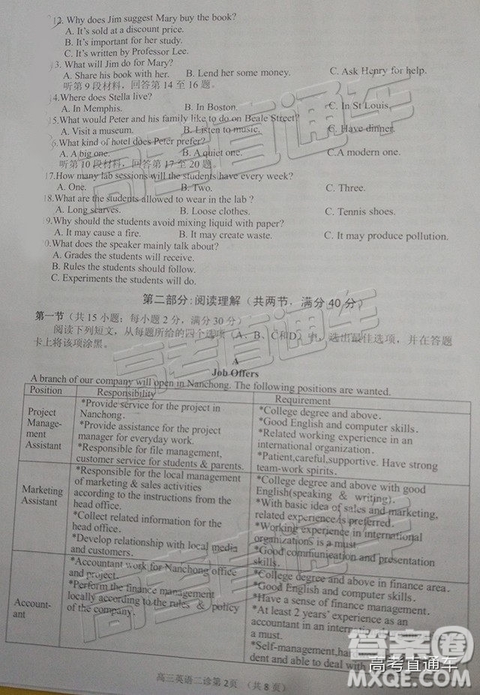 12. Why does Jim suggest Mary buy the book?
A. It's sold at a discount price.
B. It's important for her study.
C. It's written by Professor Lee.
3. What will Jim do for Mary?
A. Share his book with her. B. Lend her some money. C. Ask Henry for help.
听第9段材料，回答第14至16题。
4.Where does Stella live?
A. In Memphis. B. In Boston. C. In St Louis.
5.What would Peter and his family like to do on Beale Street?
A. Visit a museum. B. Listen to music. C. Have dinner.
6.What kind of hotel does Peter prefer?
A. A big one. B. A quiet one. C.A modern one.
听第10段材料，回答第17至20题。
17.How many lab sessions will the students have every week?
A. One. B. Two. C. Three.
18.What are the students allowed to wear in the lab ?
A. Long scarves. B. Loose clothes. C. Tennis shoes.
9.Why should the students avoid mixing liquid with paper?
A. It may cause a fire. B. It may create waste. C. It may produce pollution.
0.What does the speaker mainly talk about?
A. Grades the students will receive
B. Rules the students should follow.
C. Experiments the students will do.
第二部分:阅读理解（共两节，满分40分）
第一节（共15小题；每小题2分，满分30分）
阅读下列短文，从每题所给的四个选项（A、B、C和D）中，选出最佳选项，并在答题
卡上将该项涂黑。
A
Job Offers
A branch of our company will open in Nanchong. The following positions are wanted.
Position Responsibility Requirement
Project
Manage-
ment
Assistant
*Provide service for the project in
Nanchong.
*Provide assistance for the project
manager for everyday work.
*Responsible for file management,
customer service for students & parents.
*College degree and above.
*Good English and computer skills.
*Related working experience in an
international organization.
*Patient,careful,supportive. Have strong
team-work spirits.
Marketing
Assistant
*Responsible for the local management
of marketing & sales activities
according to the instructions from the
head office.
*Collect related information for the
head office.
*Develop relationship with local media
and customers.
*College degree and above with good
English(speaking & writing).
*With basic idea of sales and marketing,
related experience is preferred.
*Working experience in international
organizations is a must.
*Good communication and presentation
skills.
Account-
ant
*Accountant work for Nanchong office
and project.
*Perform the finance management
locally according to the rules & policy
of the company.
*College degree and above in finance area.
*Good English and computer skills.
*Have a sense of finance management.
*At least 2 years' experience as an
accountant in an international
*Self-starter, hard-working,
dent and able to deal with
高三英语二诊第2页 （共8页）
高考直通车
高考直通车
高考直通车
答案圈
高考直通车